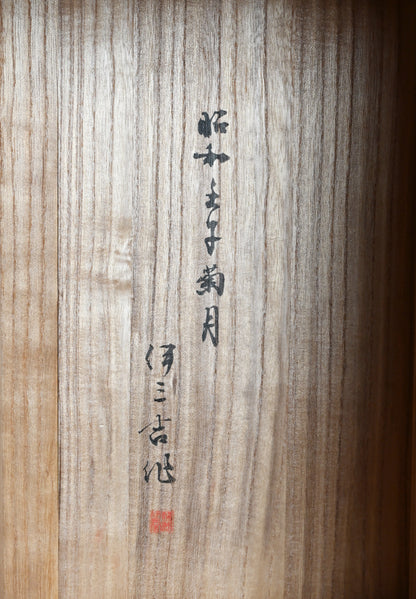 昭和壬子菊月
伊三吉作